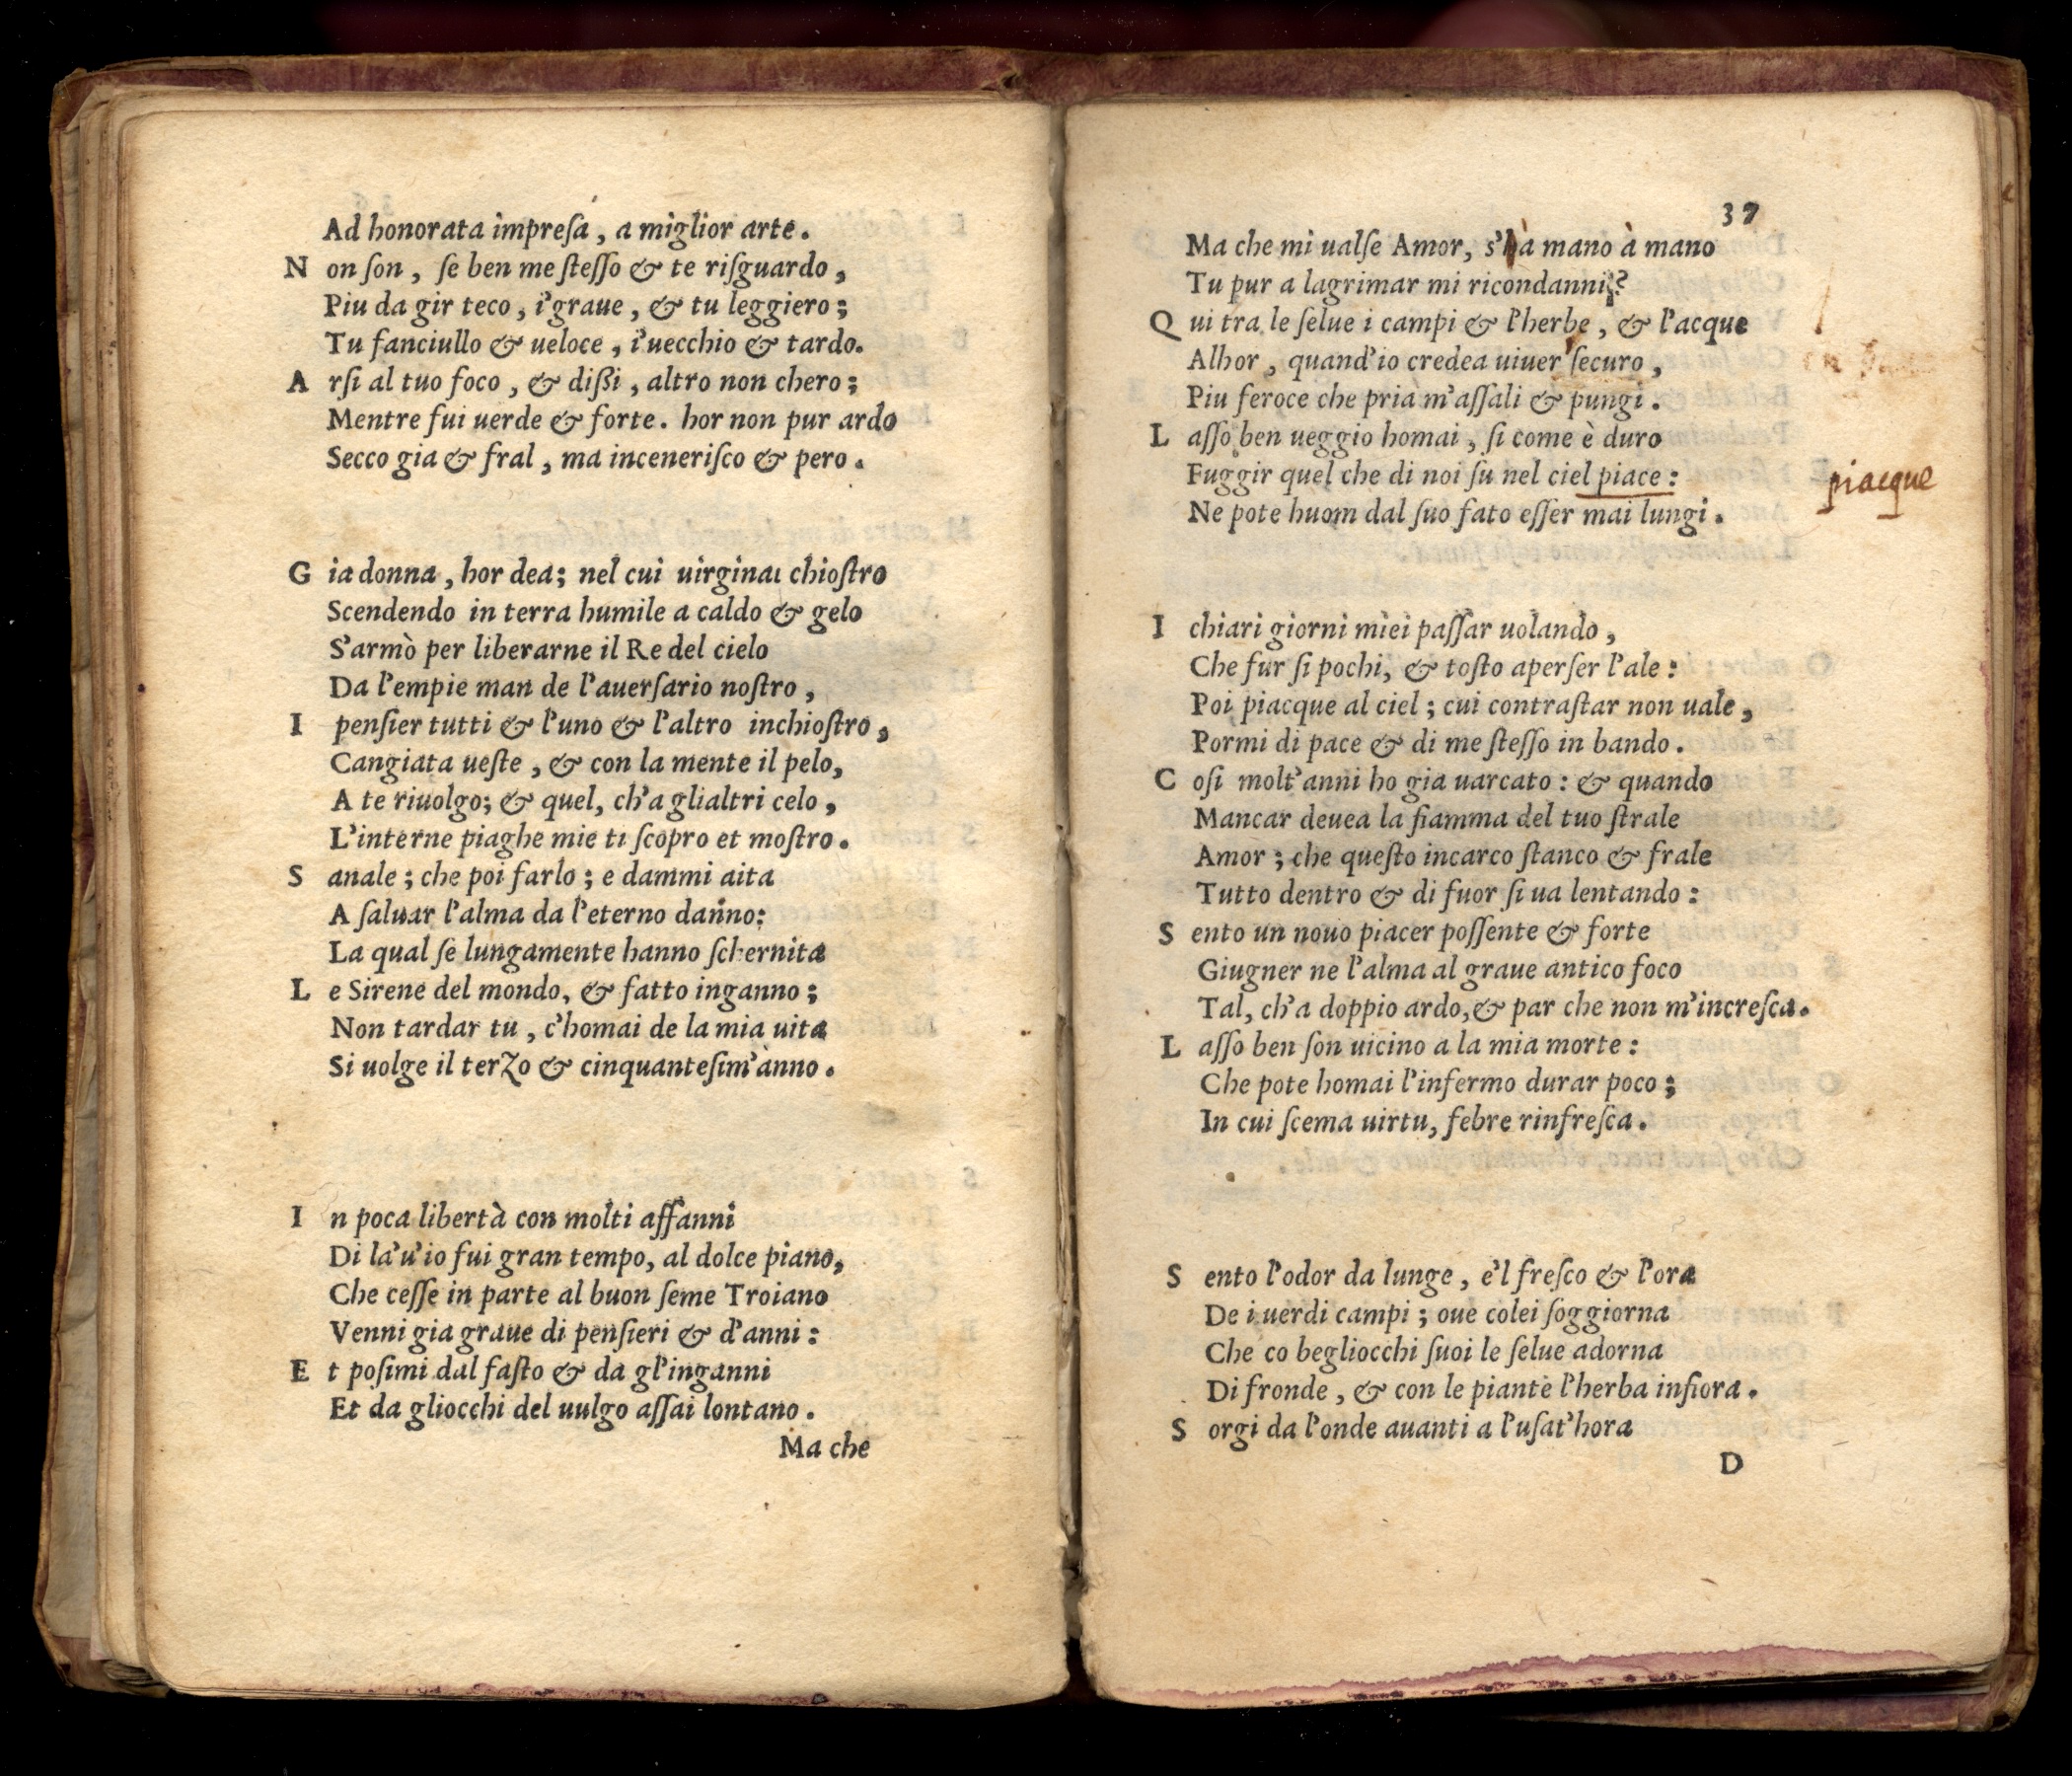 Ad honorata impreſa, a miglior arte.
N on ſon, ſe ben me ſteſſo & te riſguardo,
Piu da gir teco, i'graue, & tu leggiero;
Tu fanciullo & ueloce, i'uecchio & tardo.
A rſi al tuo foco, & dißi, altro non chero;
Mentre fui uerde & forte. hor non pur ardo
Secco gia & fral, ma inceneriſco & pero.
G ia donna, hor dea; nel cui uirginal chioſtro
Scendendo in terra humile a caldo & gelo
S'armò per liberarne il Re del cielo
Da l'empie man de l'auerſario noſtro,
I penſier tutti & l'uno & l'altro inchioſtro,
Cangiata ueſte, & con la mente il pelo,
A te riuolgo; & quel, ch'a glialtri celo,
L'interne piaghe mie ti ſcopro et moſtro.
S anale; che poi farlo; e dammi aita
A ſaluar l'alma da l'eterno danno:
La qual ſe lungamente hanno ſchernita
L e Sirene del mondo, & fatto inganno;
Non tardar tu, c'homai de la mia uita
Si uolge il terzo & cinquanteſim'anno.
I n poca libertà con molti affanni
Di la'u'io fui gran tempo, al dolce piano,
Che ceſſe in parte al buon ſeme Troiano
Venni gia graue di penſieri & d'anni:
E t poſimi dal faſto & da gl'inganni
Et da gliocchi del uulgo aſſai lontano.
Ma che
37
Ma che mi ualſe Amor, s'hà mano à mano
Tu pur a lagrimar mi ricondanni?
Q ui tra le ſelue i campi & l'herbe, & l'acque
Alhor, quand'io credea uiuer ſecuro,
Piu feroce che pria m'aſſali & pungi.
L aſſo ben ueggio homai, ſi come è duro
Fuggir quel che di noi ſu nel ciel piace:
piacque
Ne pote huom dal ſuo fato eſſer mai lungi.
I chiari giorni miei paſſar uolando,
Che fur ſi pochi, & toſto aperſer l'ale:
Poi piacque al ciel; cui contraſtar non uale,
Pormi di pace & di me ſteſſo in bando.
C oſi molt'anni ho gia uarcato: & quando
Mancar deuea la fiamma del tuo ſtrale
Amor; che queſto incarco ſtanco & frale
Tutto dentro & di fuor ſi ua lentando:
S ento un nouo piacer poſſente & forte
Giugner ne l'alma al graue antico foco
Tal, ch'a doppio ardo, & par che non m'increſca.
L aſſo ben ſon uicino a la mia morte:
Che pote homai l'infermo durar poco;
In cui ſcema uirtu, febre rinfreſca.
S ento l'odor da lunge, e'l freſco & l'ora
De i uerdi campi; oue colei ſoggiorna
Che co begliocchi ſuoi le ſelue adorna
Di fronde, & con le piante l'herba infiora.
S orgi da l'onde auanti a l'uſat'hora
D